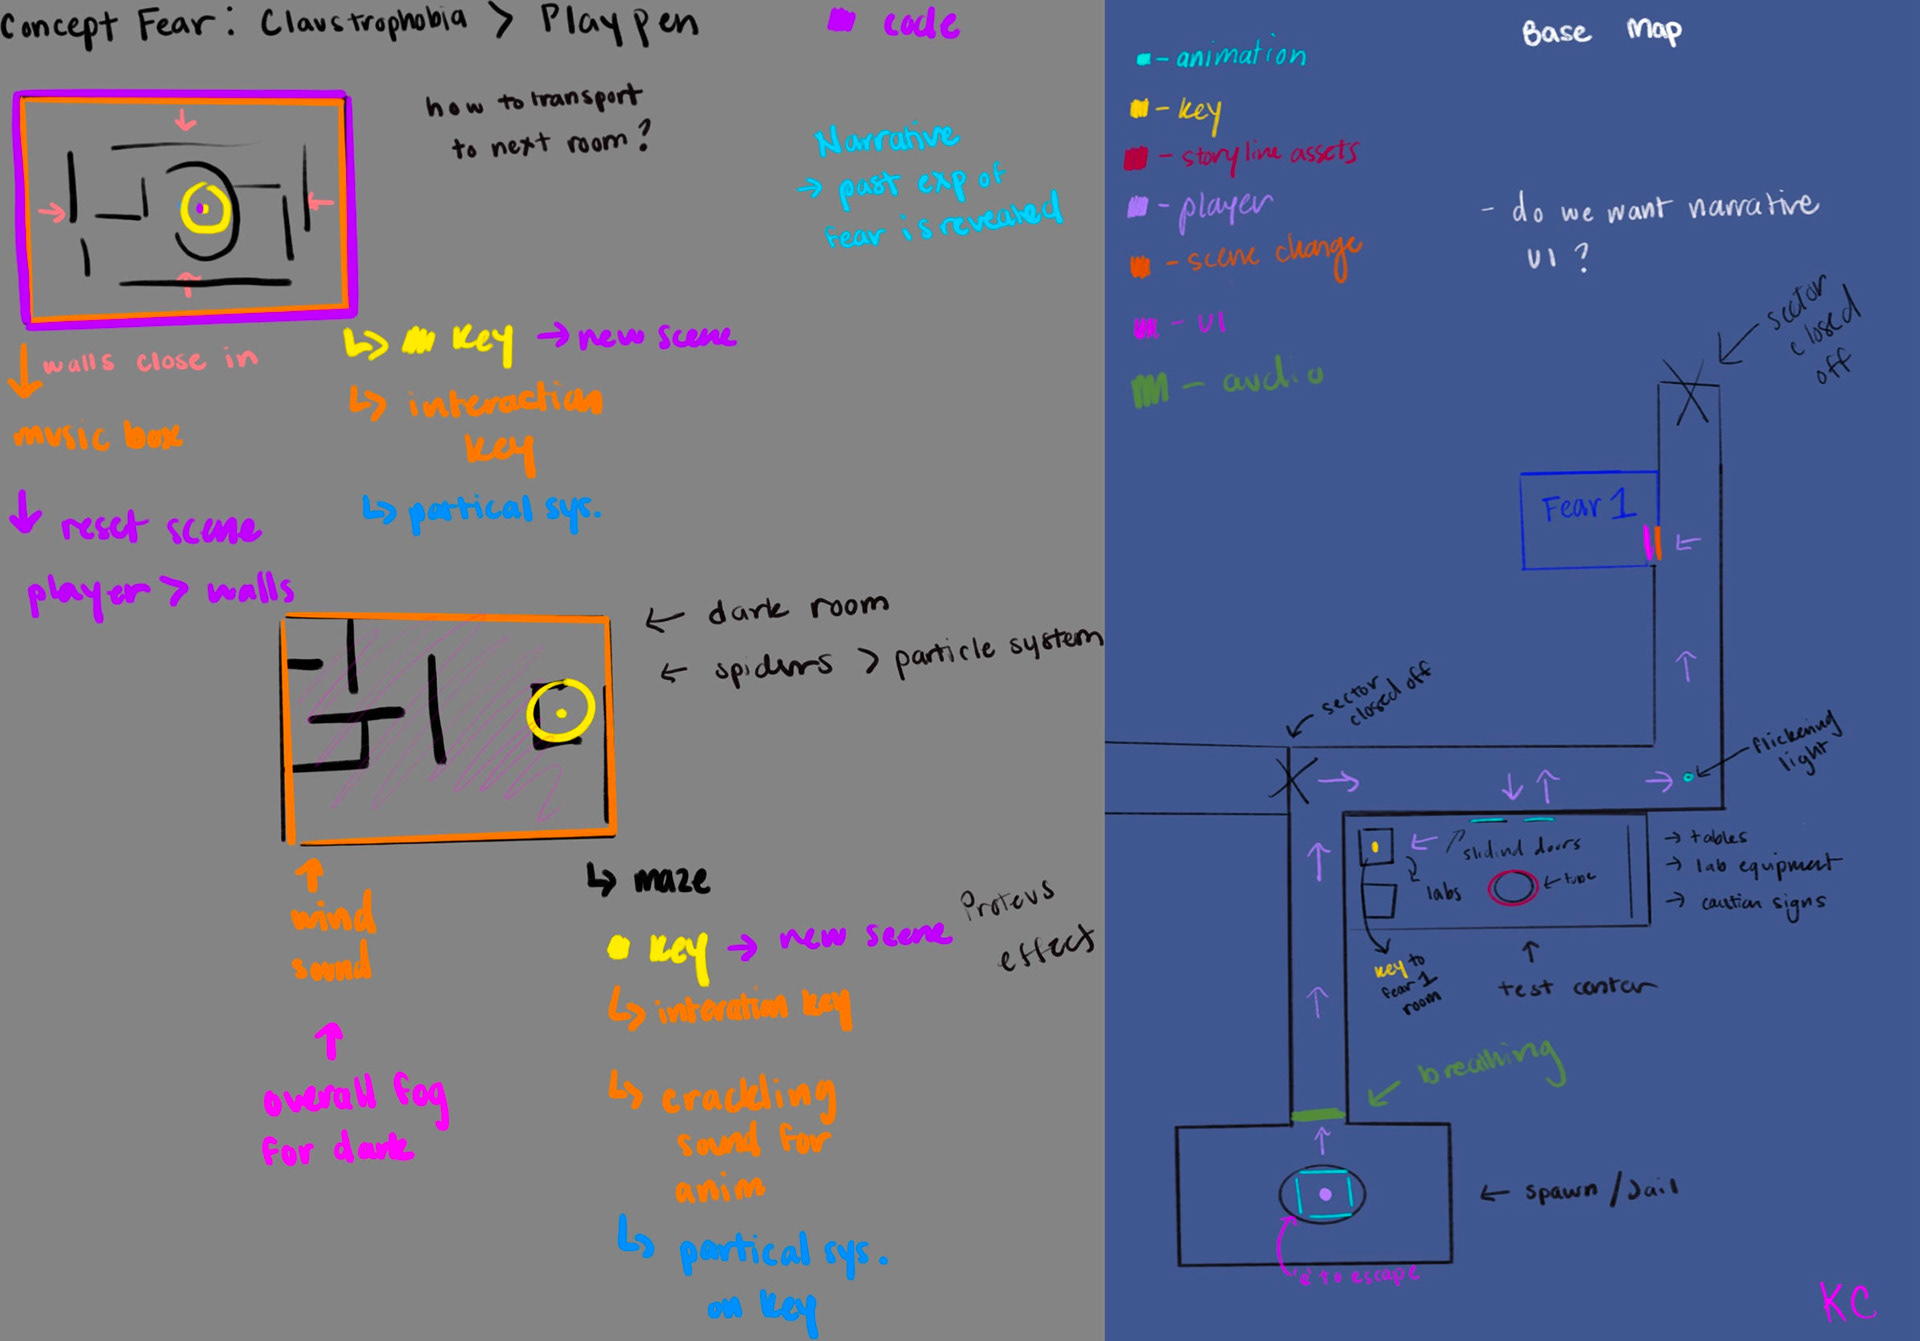 Concept Fear: Claustrophobia > Playpen
code
how to transport
to next room?
Narrative
→ past exp of
fear is revealed
walls close in
music box
reset scene
player > walls
↳ key → new scene
↳ interaction
key
↳ partical sys.
← dark room
← spiders > particle system
wind
sound
overall fog
for dark
↳ maze
key → new scene
↳ interation key
↳ crackling
sound for
anim
↳ partical sys.
on key
Proteus
effect
Base Map
- animation
- key
- storyline assets
- player
- scene change
- UI
- audio
- do we want narrative
UI?
sector
closed
off
Fear 1
sector
closed off
flickering
light
slidind doors
labs
← tube
→ tables
→ lab equipment
→ caution signs
key to
fear 1
room
test center
breathing
← spawn / Jail
'e' to escape
KC